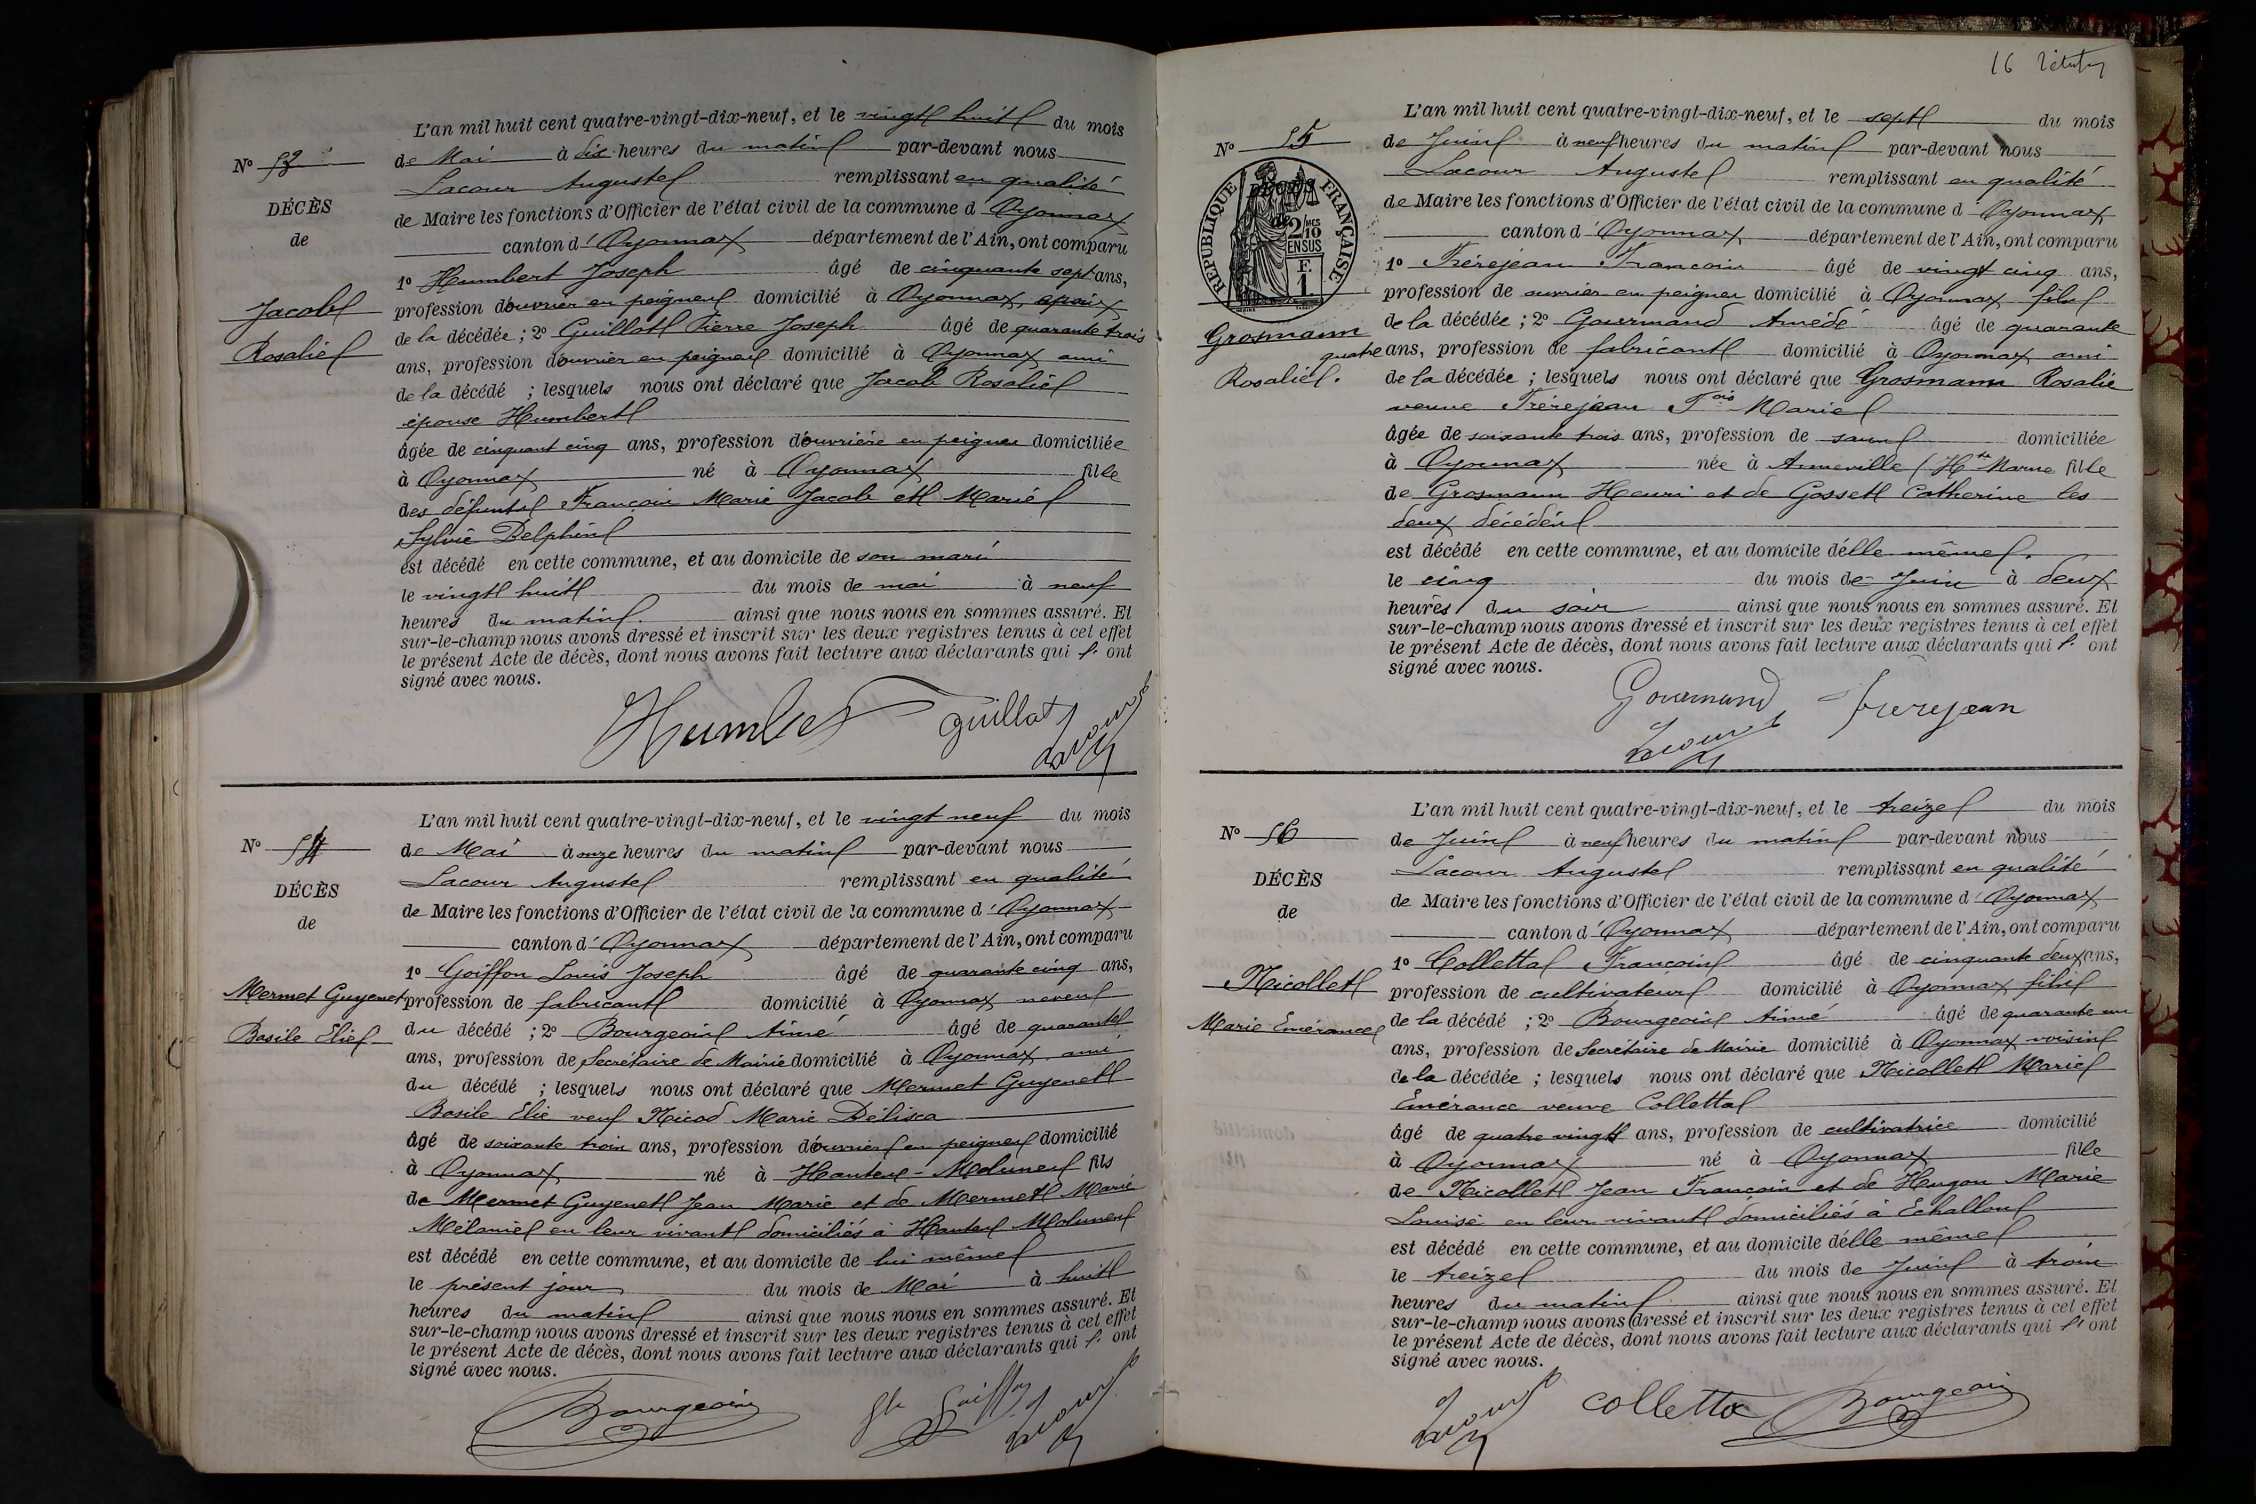 L'an mil huit cent quatre-vingt-dix-neuf, et le vingt huit du mois
No 53
de Mai à dix heures du matin par-devant nous
Lacour Auguste remplissant en qualité
DÉCÈS
de Maire les fonctions d'Officier de l'état civil de la commune d'Oyonnax
de
canton d'Oyonnax département de l'Ain, ont comparu
1o Humbert Joseph âgé de cinquante sept ans,
Jacob
profession d'ouvrier en peignes domicilié à Oyonnax, époux
de la décédée ; 2o Guillot Pierre Joseph âgé de quarante trois
Rosalie
ans, profession d'ouvrier en peignes domicilié à Oyonnax ami
de la décédé ; lesquels nous ont déclaré que Jacob Rosalie
épouse Humbert
âgée de cinquant cinq ans, profession d'ouvrière en peignes domiciliée
à Oyonnax né à Oyonnax fille
des défunts François Marie Jacob et Marie
Sylvie Delphin
est décédé en cette commune, et au domicile de son mari
le vingt huit du mois de mai à neuf
heures du matin. ainsi que nous nous en sommes assuré. Et
sur-le-champ nous avons dressé et inscrit sur les deux registres tenus à cet effet
le présent Acte de décès, dont nous avons fait lecture aux déclarants qui l' ont
signé avec nous.
Humbert Guillot Lacour
L'an mil huit cent quatre-vingt-dix-neuf, et le vingt neuf du mois
No 54
de Mai à onze heures du matin par-devant nous
Lacour Auguste remplissant en qualité
DÉCÈS
de Maire les fonctions d'Officier de l'état civil de la commune d'Oyonnax
de
canton d'Oyonnax département de l'Ain, ont comparu
1o Goiffon Louis Joseph âgé de quarante cinq ans,
Mermet Guyenet
profession de fabricant domicilié à Oyonnax neveu
Basile Elie
du décédé ; 2o Bourgeois Aimé âgé de quarante
ans, profession de Secrétaire de Mairie domicilié à Oyonnax ami
du décédé ; lesquels nous ont déclaré que Mermet Guyenet
Basile Elie veuf Nicod Marie Délisca
âgé de soixante trois ans, profession d'ouvrier en peignes domicilié
à Oyonnax né à Hauteu-Molunes fils
de Mermet Guyenet Jean Marie et de Mermet Marie
Mélanie en leur vivant domiciliés à Hauteu Molunes
est décédé en cette commune, et au domicile de lui même
le présent jour du mois de Mai à huit
heures du matin ainsi que nous nous en sommes assuré. Et
sur-le-champ nous avons dressé et inscrit sur les deux registres tenus à cet effet
le présent Acte de décès, dont nous avons fait lecture aux déclarants qui l' ont
signé avec nous.
Bourgeois Goiffon Lacour
16
L'an mil huit cent quatre-vingt-dix-neuf, et le sept du mois
No 55
de Juin à neuf heures du matin par-devant nous
RÉPUBLIQUE FRANÇAISE
2/10 EN SUS
F. 1
Lacour Auguste remplissant en qualité
de Maire les fonctions d'Officier de l'état civil de la commune d'Oyonnax
canton d'Oyonnax département de l'Ain, ont comparu
1o Frèrejean François âgé de vingt cinq ans,
profession de ouvrier en peignes domicilié à Oyonnax fils
Grosmann
de la décédée ; 2o Gourmand Amédé âgé de quarante
quatre ans, profession de fabricant domicilié à Oyonnax ami
Rosalie.
de la décédée ; lesquels nous ont déclaré que Grosmann Rosalie
veuve Frèrejean Fois Marie
âgée de soixante trois ans, profession de sans domiciliée
à Oyonnax née à Anneville (Hte Marne fille
de Grosmann Henri et de Gosset Catherine les
deux décédés
est décédé en cette commune, et au domicile d'elle même.
le cinq du mois de Juin à deux
heures du soir ainsi que nous nous en sommes assuré. Et
sur-le-champ nous avons dressé et inscrit sur les deux registres tenus à cet effet
le présent Acte de décès, dont nous avons fait lecture aux déclarants qui l' ont
signé avec nous.
Gourmand frerejean
Lacour
L'an mil huit cent quatre-vingt-dix-neuf, et le treize du mois
No 56
de Juin à neuf heures du matin par-devant nous
Lacour Auguste remplissant en qualité
DÉCÈS
de Maire les fonctions d'Officier de l'état civil de la commune d'Oyonnax
de
canton d'Oyonnax département de l'Ain, ont comparu
1o Colletta François âgé de cinquante deux ans,
Nicollet
profession de cultivateur domicilié à Oyonnax fils
Marie Emérance
de la décédé ; 2o Bourgeois Aimé âgé de quarante un
ans, profession de Secrétaire de Mairie domicilié à Oyonnax voisin
de la décédée ; lesquels nous ont déclaré que Nicollet Marie
Emérance veuve Colletta
âgé de quatre vingt ans, profession de cultivatrice domicilié
à Oyonnax né à Oyonnax fille
de Nicollet Jean François et de Hugon Marie
Louise en leur vivant domiciliés à Echallon
est décédé en cette commune, et au domicile d'elle même
le treize du mois de Juin à trois
heures du matin ainsi que nous nous en sommes assuré. Et
sur-le-champ nous avons dressé et inscrit sur les deux registres tenus à cet effet
le présent Acte de décès, dont nous avons fait lecture aux déclarants qui l' ont
signé avec nous.
Lacour Colletta Bourgeois